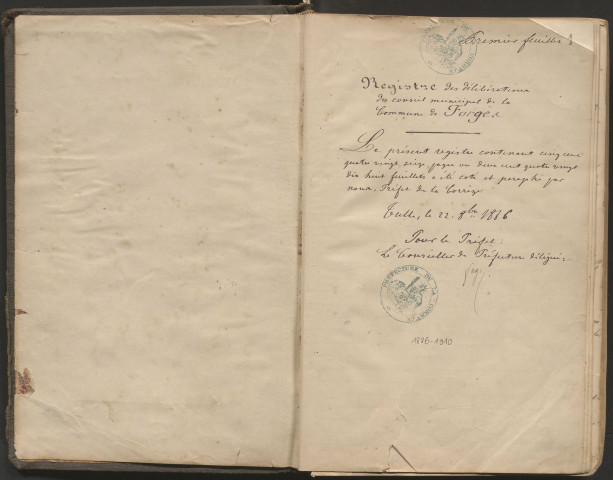 Premier feuillet
Registre des délibérations
du conseil municipal de la
Commune de Forges
Le présent registre contenant cinq cent
quatre vingt seize pages ou deux cent quatre vingt
dix huit feuillets a été coté et paraphé par
nous, Préfet de la Corrèze
Tulle, le 22 8bre 1876
Pour le Préfet:
Le Conseiller de Préfecture délégué:
PREFECTURE DE LA CORREZE
1876-1910